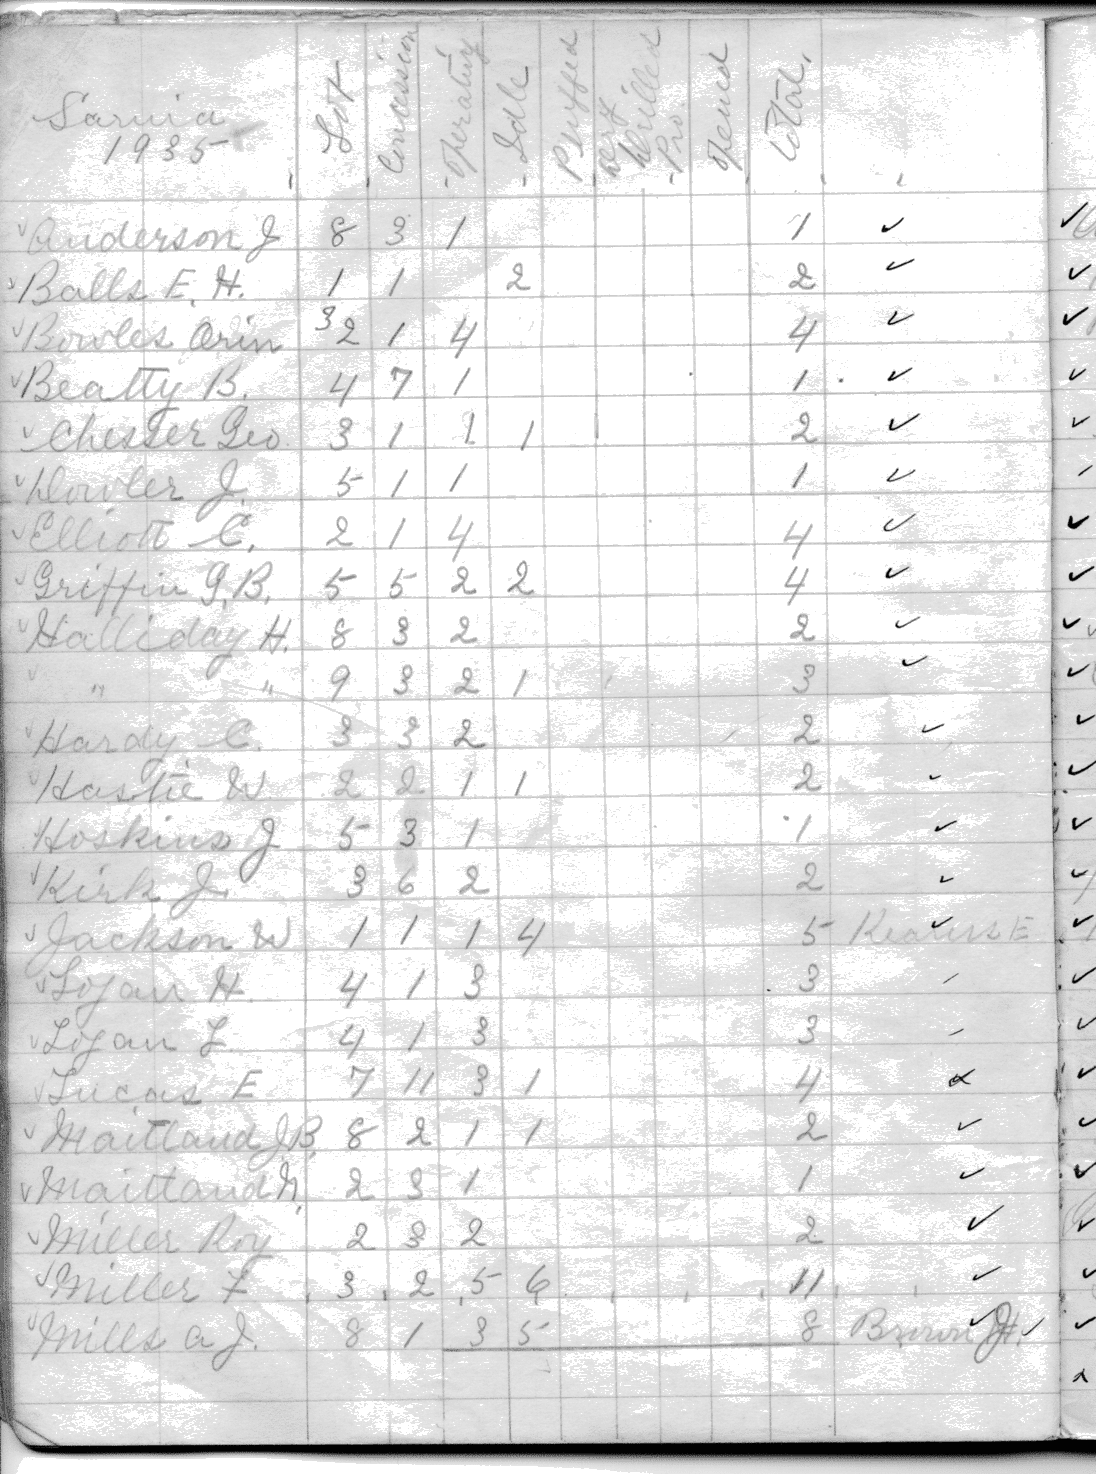 Sarnia
1935
Lot Concession Operating Idle Puffed Dry Drilled Pro. Opened Total.
✓ Anderson J 8 3 1 1 ✓
✓ Balls E. H. 1 1 2 2 ✓
✓ Bowles Orin 32 1 4 4 ✓
✓ Beatty B. 4 7 1 1 ✓
✓ Chester Geo. 3 1 1 1 2 ✓
✓ Dowler J. 5 1 1 1 ✓
✓ Elliott C. 2 1 4 4 ✓
✓ Griffin G. B. 5 5 2 2 4 ✓
✓ Halliday H. 8 3 2 2 ✓
✓ " " 9 3 2 1 3 ✓
✓ Hardy C. 3 3 2 2 ✓
✓ Hastie W 2 2 1 1 2 ✓
✓ Hoskins J 5 3 1 1 ✓
✓ Kirk J. 3 6 2 2 ✓
✓ Jackson W 1 1 1 4 5 E ✓
✓ Logan H. 4 1 3 3
✓ Logan L 4 1 3 3
✓ Lucas E 7 11 3 1 4
✓ Maitland J.B. 8 2 1 1 2 ✓
✓ Maitland N. 2 3 1 1 ✓
✓ Miller Roy 2 3 2 2 ✓
✓ Miller F 3 2 5 6 11 ✓
✓ Mills A J. 8 1 3 5 8 Brown H. ✓